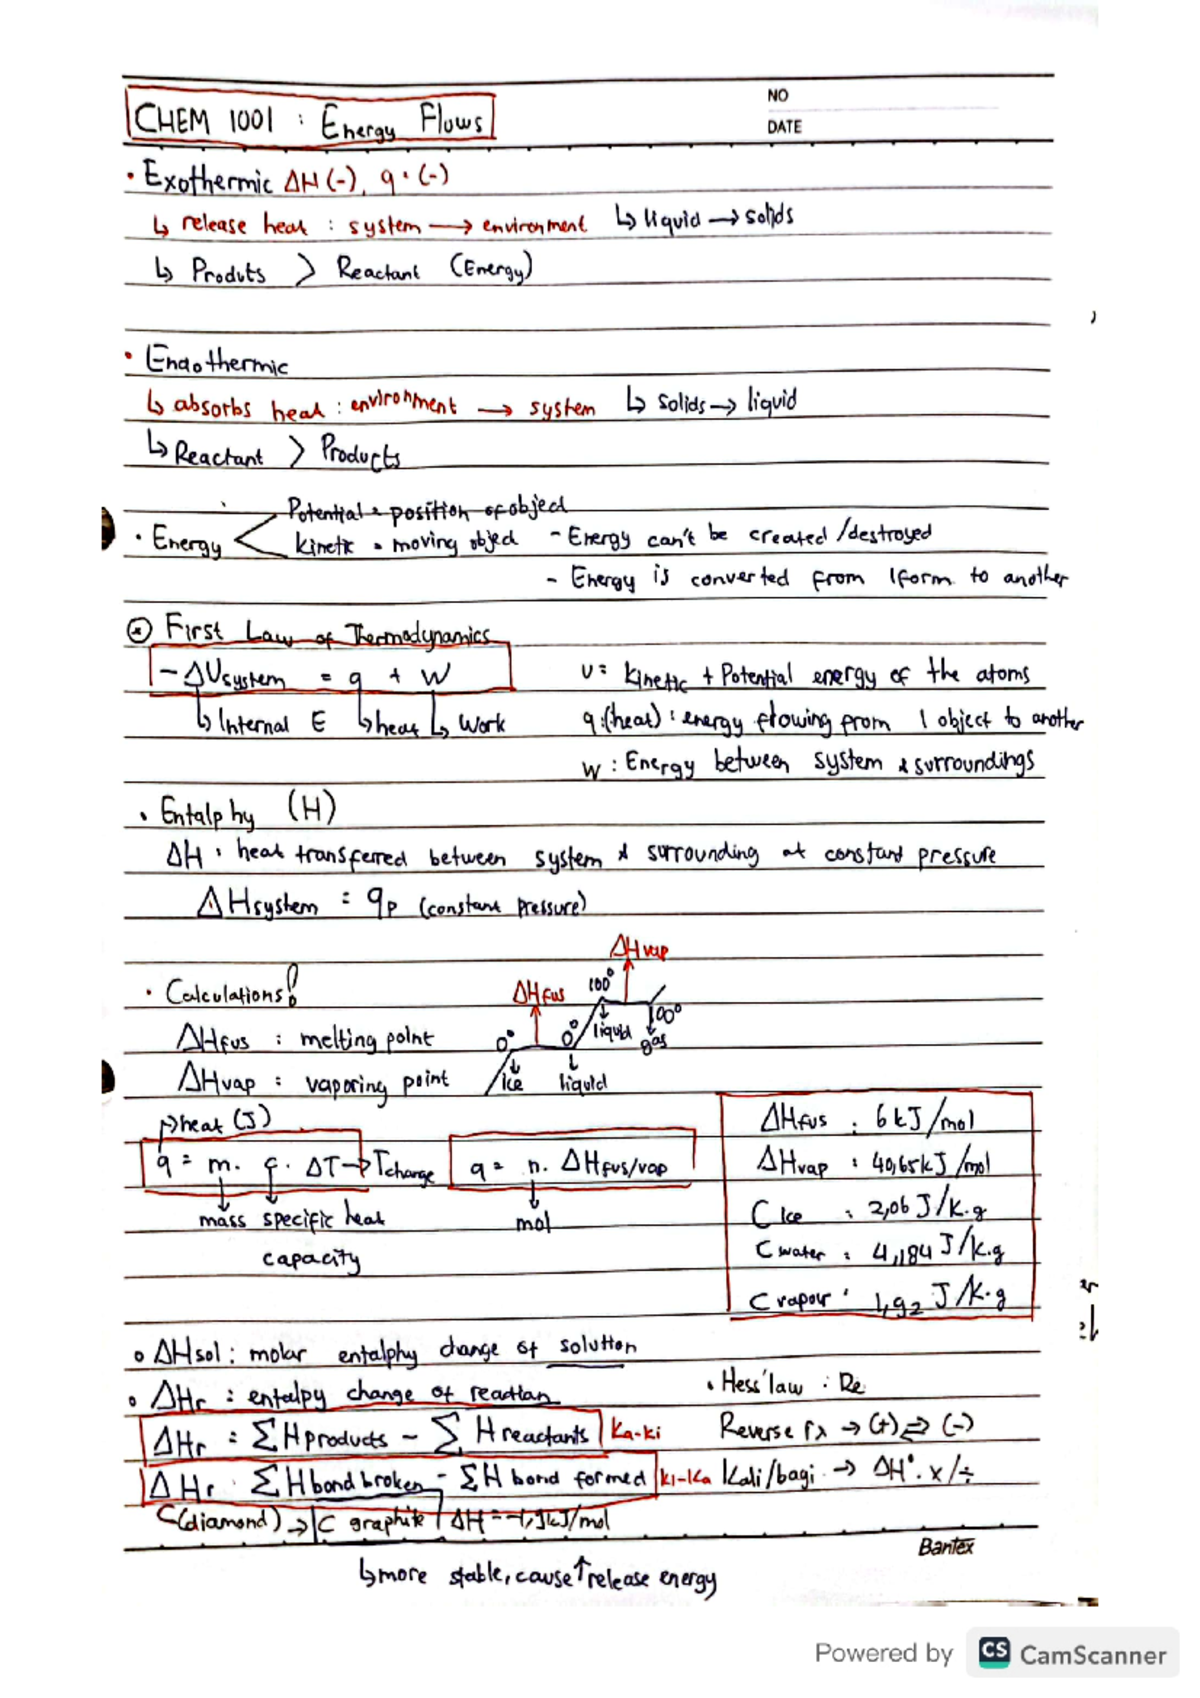 CHEM 1001 : Energy Flows
NO
DATE
• Exothermic ΔH (-), q · (-)
↳ release heat : system → environment ↳ liquid → solids
↳ Produts > Reactant (Energy)
• Endothermic
↳ absorbs heat : environment → system ↳ solids → liquid
↳ Reactant > Products
• Energy < Potential = position of object
kinetic = moving object - Energy can't be created /destroyed
- Energy is converted from 1 form to another
First Law of Thermodynamics
- ΔUsystem = q + W
U = kinetic + Potential energy of the atoms
↳ Internal E ↳ heat ↳ Work
q : (heat) : energy flowing from 1 object to another
W : Energy between system & surroundings
• Entalphy (H)
ΔH : heat transferred between system & surrounding at constant pressure
ΔHsystem = qp (constant pressure)
• Calculations!
ΔHfus : melting point
ΔHvap : vaporing point
ΔHvap
ΔHfus 100° 100°
0° 0° liquid gas
Ice liquid
heat (J)
q = m. c. ΔT → Tchange
mass specific heat capacity
q = n. ΔHfus/vap
mol
ΔHfus : 6 kJ/mol
ΔHvap : 40,65 kJ/mol
C Ice : 2,06 J/K.g
C water : 4,184 J/K.g
C vapour : 1,92 J/K.g
• ΔHsol : molar entalphy change of solution
• ΔHr : entalpy change of reaction
ΔHr = ΣHproducts - ΣHreactants ka-ki
ΔHr : ΣH bond broken - ΣH bond formed ki-ka
• Hess' law : Re
Reverse rx → (+) ⇒ (-)
Kali/bagi → ΔH°. x/÷
C(diamond) → C graphite ΔH = kJ/mol
↳ more stable, cause ↑ release energy
Bantex
Powered by CS CamScanner